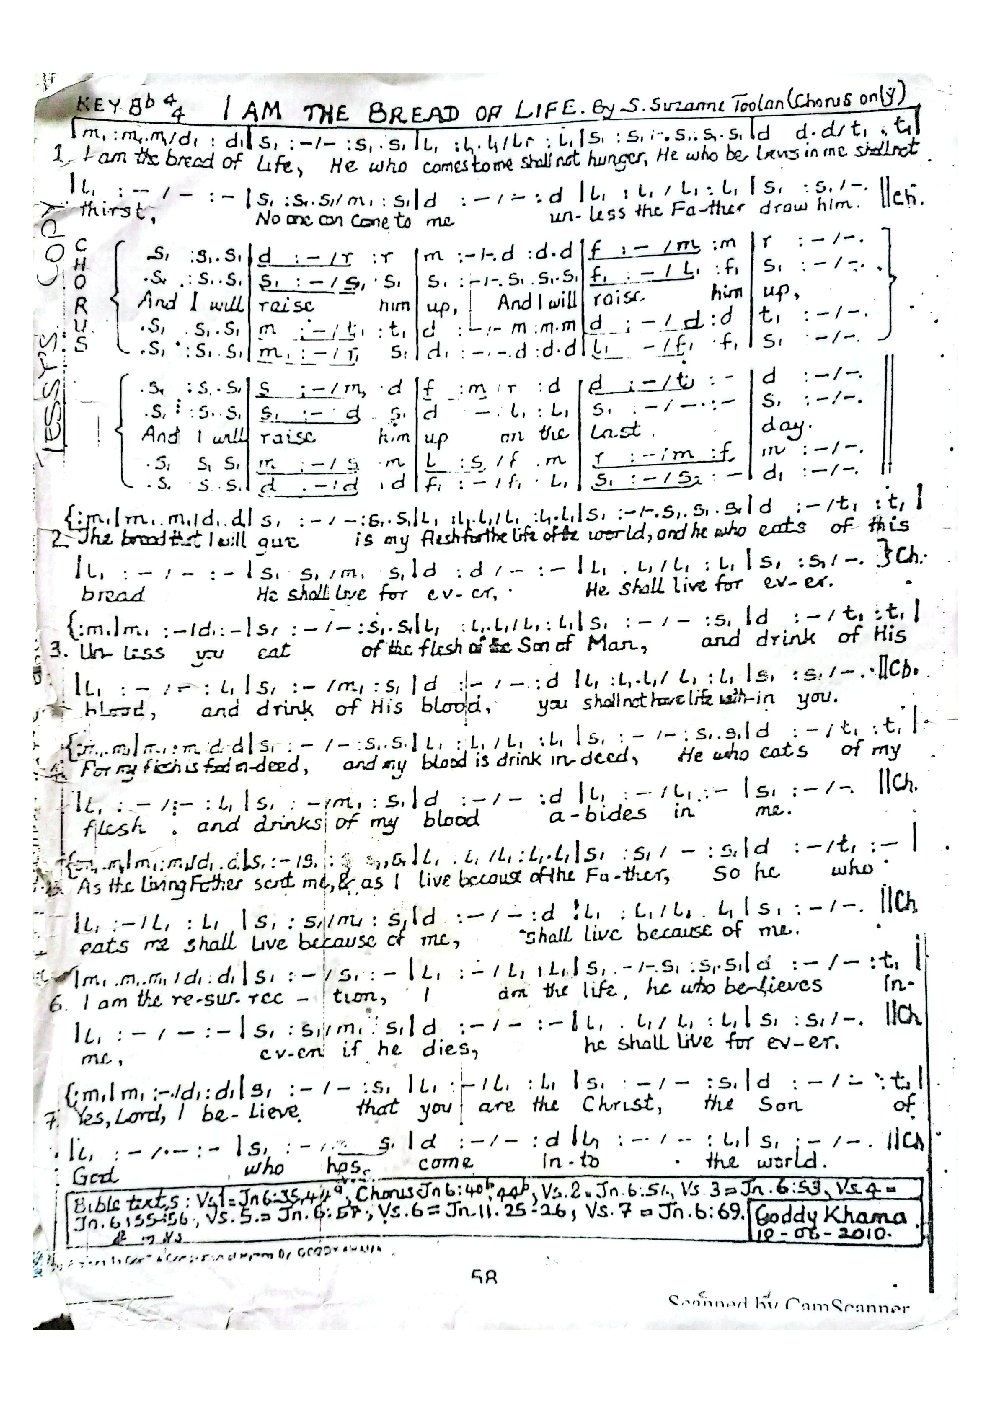 KEY Bb 4/4 I AM THE BREAD OF LIFE. By S. Suzanne Toolan (Chorus only)
|m₁ :m₁.m₁/d₁ : d₁|s₁ :-/- :s₁.s₁|l₁ :l₁.l₁/l₁ : l₁|s₁ : s₁:-.s₁.s₁.s₁|d d.d/t₁ . t₁|
1. I am the bread of life, He who comes to me shall not hunger, He who be lievs in me shall not
|l₁ : - / - : -|s₁ :s₁.s₁/m₁ : s₁|d : - / - : d|l₁ : l₁ / l₁ : l₁|s₁ : s₁/-. ||Ch.
thirst, No one can come to me un-less the Fa-ther draw him.
TESSY'S COPY
CHORUS
s₁ :s₁.s₁|d :-/r :r|m :-/-.d :d.d|f :-/m :m|r :-/-.
.s₁ :s₁.s₁|s₁ :-/s₁ . s₁|s₁ :-/-.s₁.s₁.s₁|f₁ :-/l₁ :f₁|s₁ :-/-.
And I will raise him up, And I will raise him up,
.s₁ s₁.s₁|m :-/t₁ : t₁|d :-/- m :m.m|d :-/d :d|t₁ :-/-.
.s₁ :s₁.s₁|m₁ :-/r₁ s₁|d₁ :-.-.d :d.d|l₁ -/f₁ . f₁|s₁ :-/-.
.s₁ :s₁.s₁|s :-/m, .d|f :m/r :d|d :-/t₁ :-|d :-/-.
.s₁ :s₁.s₁|s₁ :- d s₁|d -.l₁ :l₁|s₁ :-/-.:-|s₁ :-/-.
And I will raise him up on the last. day.
.s₁ s₁ s₁|m :-/s .m|l :s/f .m|r :-/m :f|m :-/-.
.s₁ s₁.s₁|d :-/d .d|f₁ :-/f₁ . l₁|s₁ :-/s₁ :-|d₁ :-/-.
{:m₁|m₁. m₁/d₁. d₁|s₁ :-/-:s₁.s₁|l₁ :l₁.l₁/l₁ :l₁.l₁|s₁ :-/-.s₁.s₁.s₁|d :-/t₁ :t₁|
2. The bread that I will give is my flesh for the life of the world, and he who eats of this
|l₁ : - / - : -|s₁ s₁/m₁ s₁|d :d / - : -|l₁ . l₁/l₁ : l₁|s₁ :s₁/-. }Ch.
bread He shall live for ev-er, He shall live for ev-er.
{:m₁|m₁ :-/d₁:-|s₁ :-/-:s₁.s₁|l₁ :l₁.l₁/l₁:l₁|s₁ :-/- :s₁|d :-/t₁ :t₁|
3. Un-less you eat of the flesh of the Son of Man, and drink of His
|l₁ :-/- : l₁|s₁ :-/m₁ :s₁|d :-/- :d|l₁ :l₁.l₁/l₁ : l₁|s₁ :s₁/-. ||Ch.
blood, and drink of His blood, you shall not have life with-in you.
{:m₁.m₁|m₁ : m d d|s₁ :-/- :s₁.s₁|l₁ : l₁/l₁ :l₁|s₁ :-/- :s₁.s₁|d :-/t₁ :t₁|
4. For my flesh is food in-deed, and my blood is drink in-deed, He who eats of my
|l₁ : - /:- : l₁|s₁ : -/m₁ : s₁|d :-/- :d|l₁ :-/l₁ .:-|s₁ :-/-. ||Ch.
flesh . and drinks of my blood a-bides in me.
{:m₁.m₁|m₁:m₁/d₁.d₁|s₁ :-/s₁ : s₁.s₁|l₁ . l₁/l₁:l₁.l₁|s₁ :s₁/- :s₁|d :-/t₁ :-|
As the living Father sent me, & as I live because of the Fa-ther, So he who
|l₁ :-/l₁ : l₁|s₁ : s₁/m₁ : s₁|d :-/- :d|l₁ : l₁/l₁ . l₁|s₁ :-/-. ||Ch
eats me shall live because of me, shall live because of me.
|m₁ .m₁.m₁/d₁ : d₁|s₁ :-/s₁ :-|l₁ :-/l₁ :l₁|s₁ .-/-.s₁ :s₁.s₁|d :-/-:t₁|
6. I am the re-sur-rec - tion, I am the life, he who be-lieves In-
|l₁ : - / - :-|s₁ : s₁/m₁ : s₁|d :-/- :-|l₁ . l₁/l₁ : l₁|s₁ : s₁/-. ||Ch
me, ev-en if he dies, he shall live for ev-er.
{:m₁|m₁ :-/d₁: d₁|s₁ :-/- :s₁|l₁ :-/l₁ : l₁|s₁ :-/- :s₁|d :-/- :t₁|
7. Yes, Lord, I be-lieve that you are the Christ, the Son of
|l₁ :-/-:-|s₁ :-/ s₁|d :-/- :d|l₁ :-/- : l₁|s₁ :-/-. ||Ch
God who has come In-to the world.
Bible texts: Vs1=Jn 6:35,44a, Chorus Jn 6:40b,44b, Vs.2=Jn.6:51, Vs 3=Jn.6:53, Vs.4=
Jn.6:55-56, Vs.5.=Jn.6:57, Vs.6=Jn.11.25-26, Vs.7=Jn.6:69.
Goddy Khama
10-06-2010.
58
Scanned by CamScanner